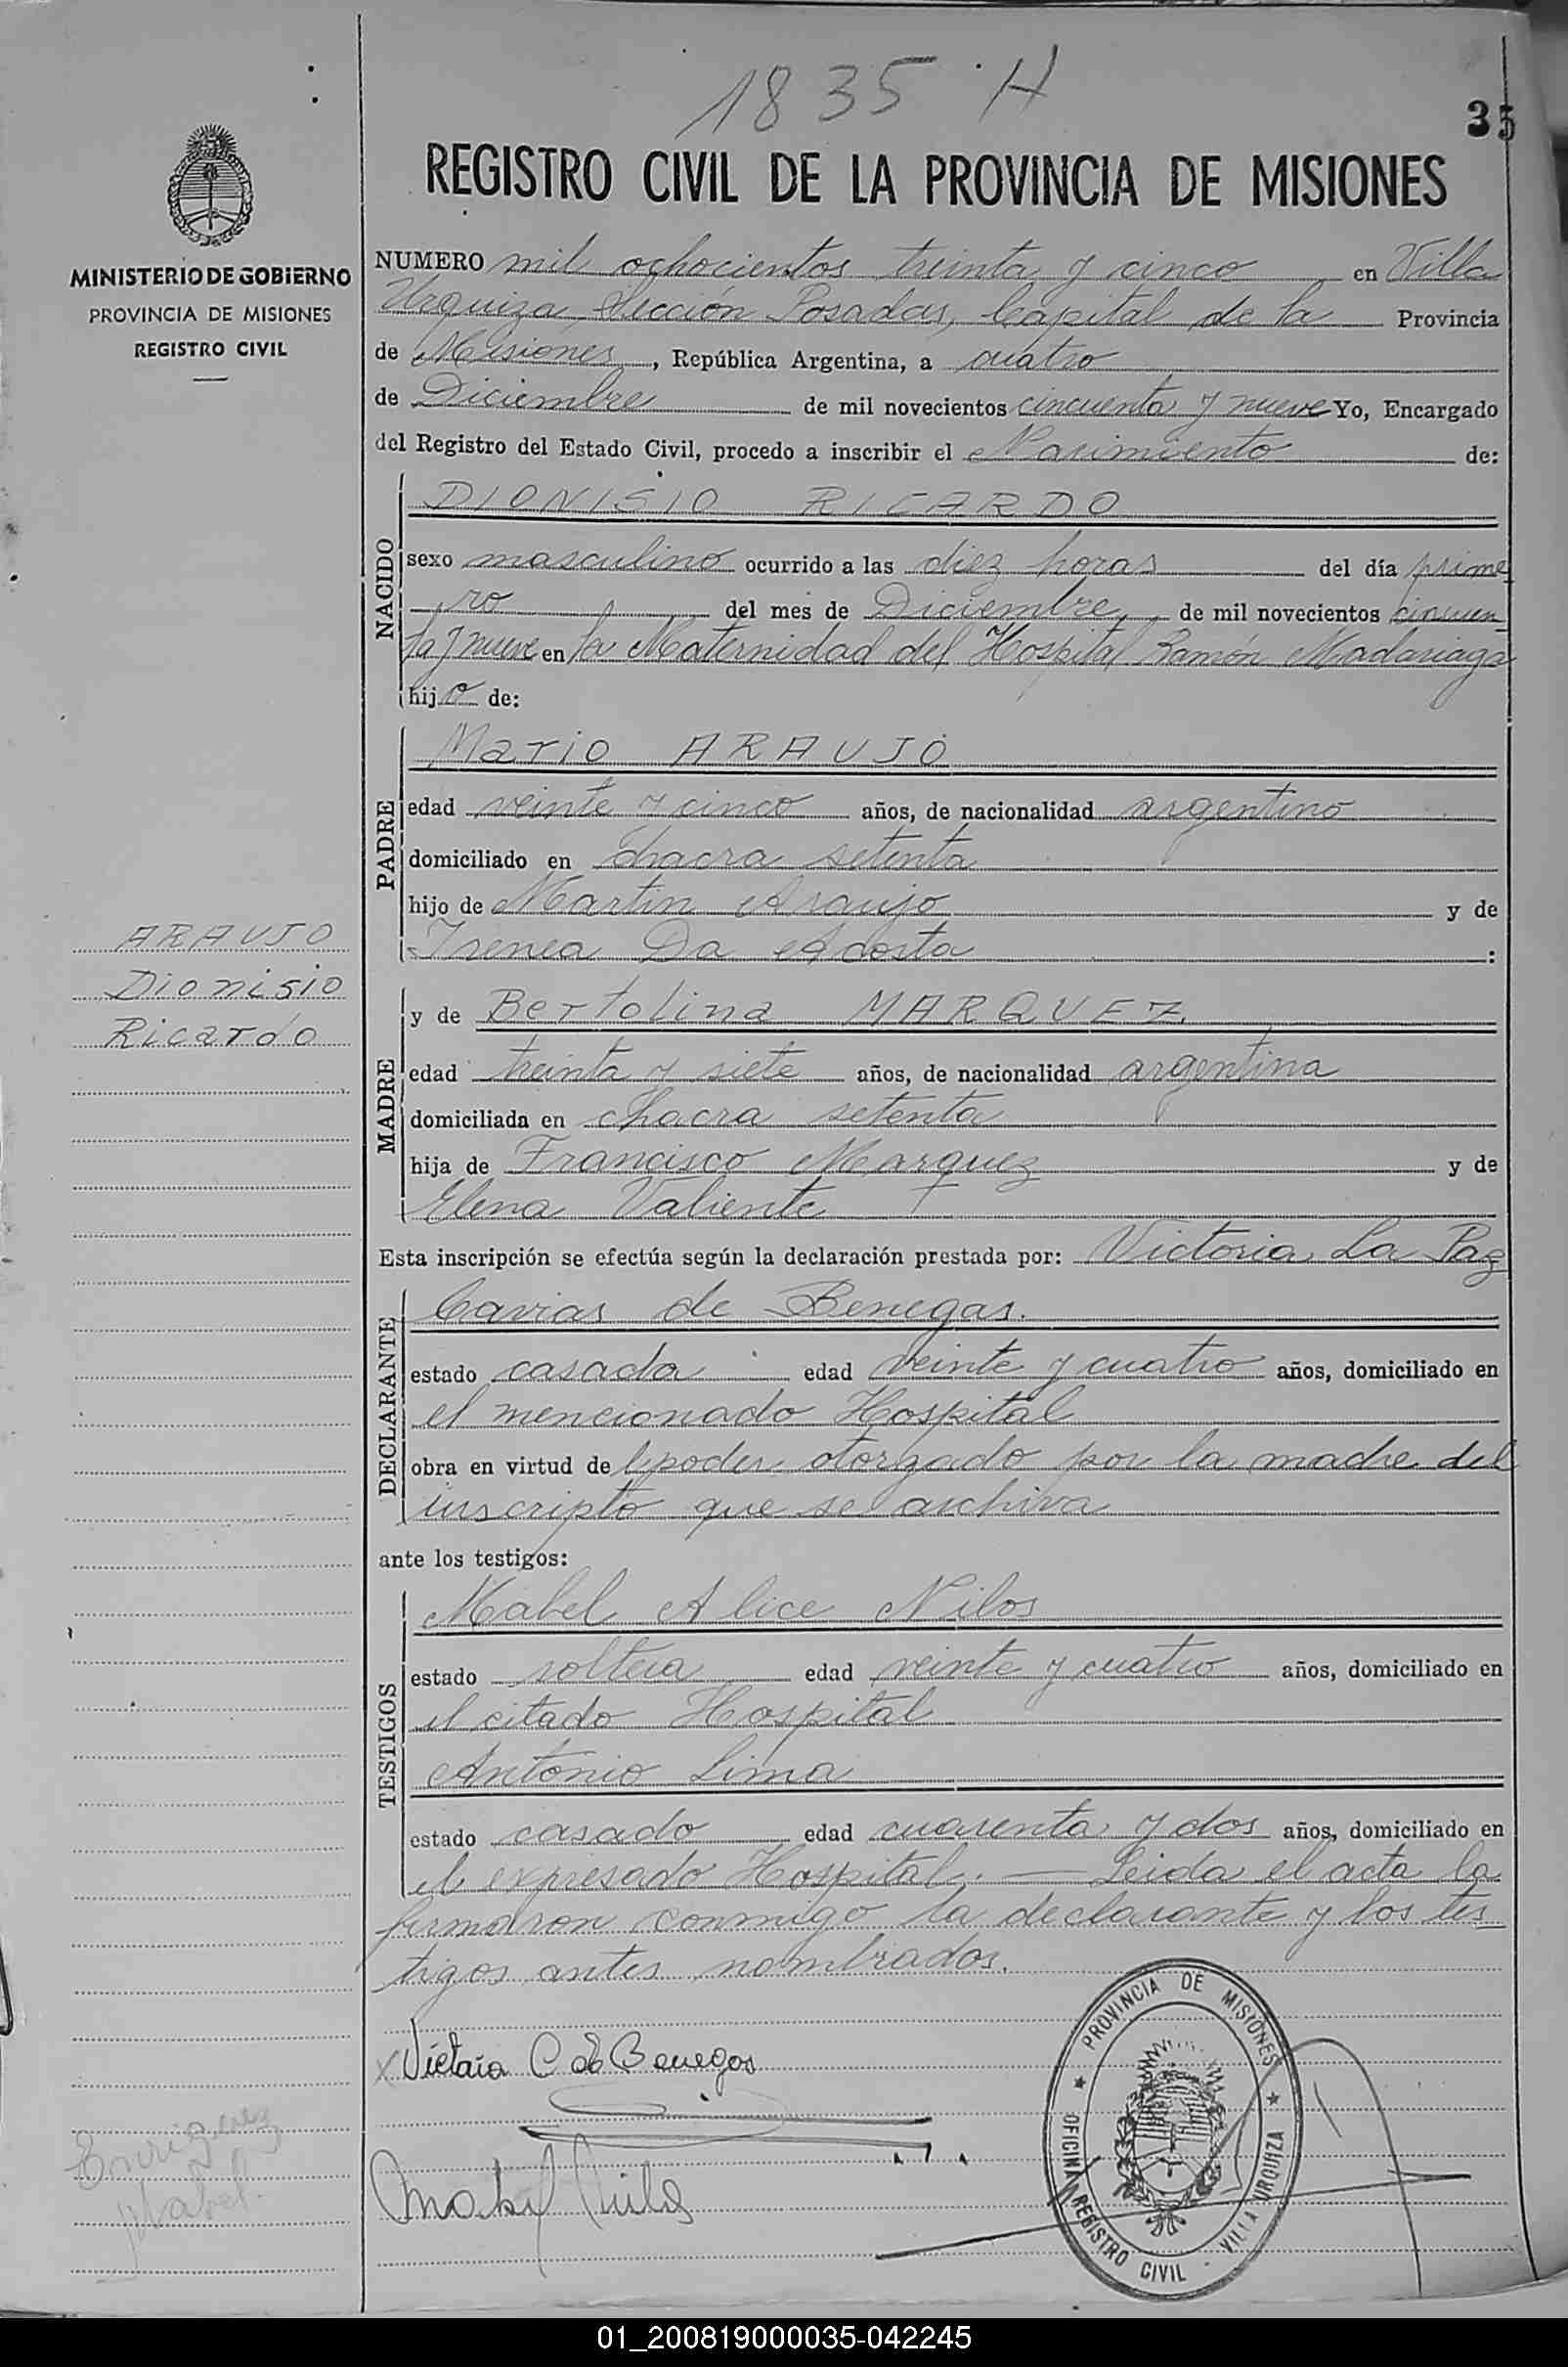 1835 H
35
REGISTRO CIVIL DE LA PROVINCIA DE MISIONES
MINISTERIO DE GOBIERNO
PROVINCIA DE MISIONES
REGISTRO CIVIL
NUMERO mil ochocientos treinta y cinco en Villa
Urquiza, Sección Posadas, Capital de la Provincia
de Misiones, República Argentina, a cuatro
de Diciembre de mil novecientos cincuenta y nueve Yo, Encargado
del Registro del Estado Civil, procedo a inscribir el Nacimiento de:
NACIDO
DIONISIO RICARDO
sexo masculino ocurrido a las diez horas del día prime
ro del mes de Diciembre de mil novecientos cincuen
ta y nueve en la Maternidad del Hospital Ramón Madariaga
hijo de:
PADRE
Mario ARAUJO
edad veinte y cinco años, de nacionalidad argentino
domiciliado en chacra setenta
hijo de Martin Araujo y de
Irenea Da Acosta :
ARAUJO
Dionisio
Ricardo
MADRE
y de Bertolina MARQUEZ
edad treinta y siete años, de nacionalidad argentina
domiciliada en chacra setenta
hija de Francisco Marquez y de
Elena Valiente
Esta inscripción se efectúa según la declaración prestada por: Victoria La Paz
DECLARANTE
Cavias de Benegas.
estado casada edad veinte y cuatro años, domiciliado en
el mencionado Hospital
obra en virtud de poder otorgado por la madre del
inscripto que se archiva
ante los testigos:
TESTIGOS
Mabel Alice Nilos
estado soltera edad veinte y cuatro años, domiciliado en
el citado Hospital
Antonio Lima
estado casado edad cuarenta y dos años, domiciliado en
el expresado Hospital. — Leida el acta la
firmaron conmigo la declarante y los tes
tigos antes nombrados.
Victoria C de Benegas
Mabel
Enriquez
Mabel.
PROVINCIA DE MISIONES
OFICINA REGISTRO CIVIL - VILLA URQUIZA
01_200819000035-042245